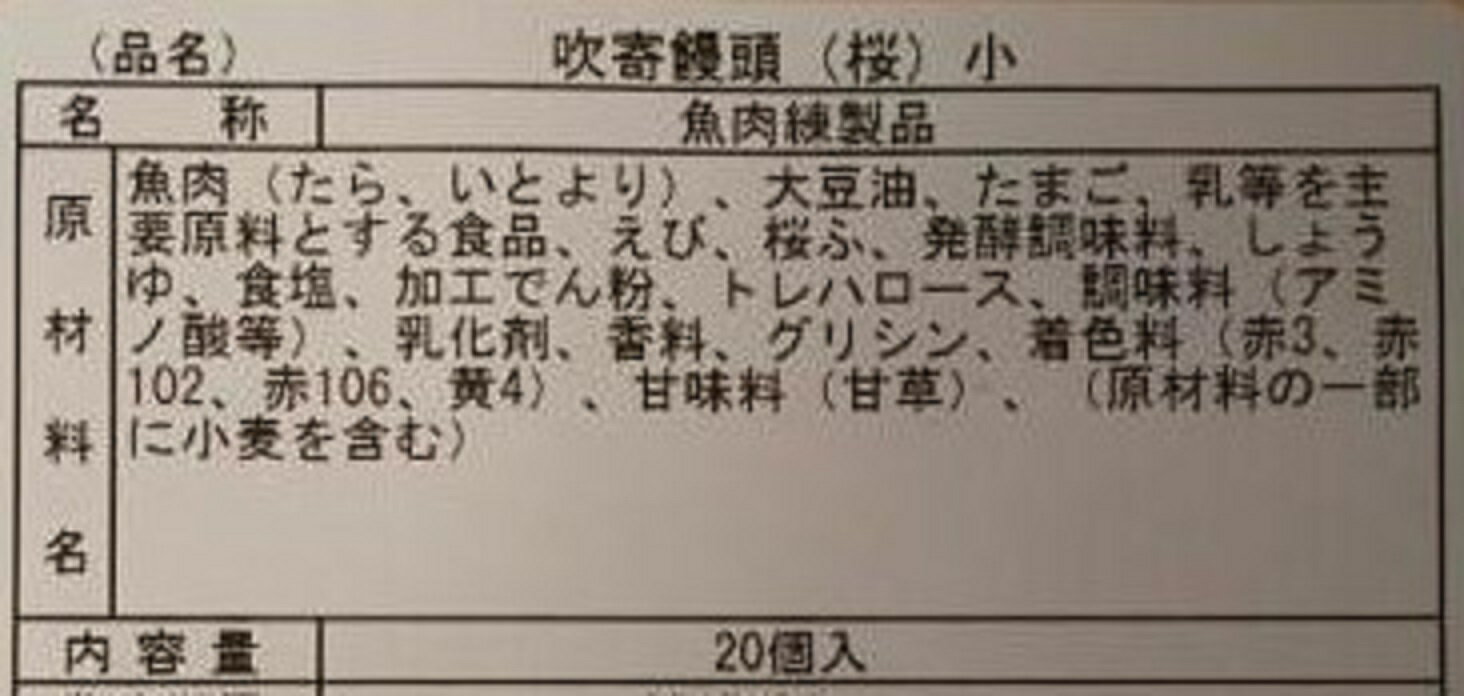 （品名） 吹寄饅頭（桜）小
名称 魚肉練製品
原材料名 魚肉（たら、いとより）、大豆油、たまご、乳等を主
要原料とする食品、えび、桜ふ、発酵調味料、しょう
ゆ、食塩、加工でん粉、トレハロース、調味料（アミ
ノ酸等）、乳化剤、香料、グリシン、着色料（赤3、赤
102、赤106、黄4）、甘味料（甘草）、（原材料の一部
に小麦を含む）
内容量 20個入